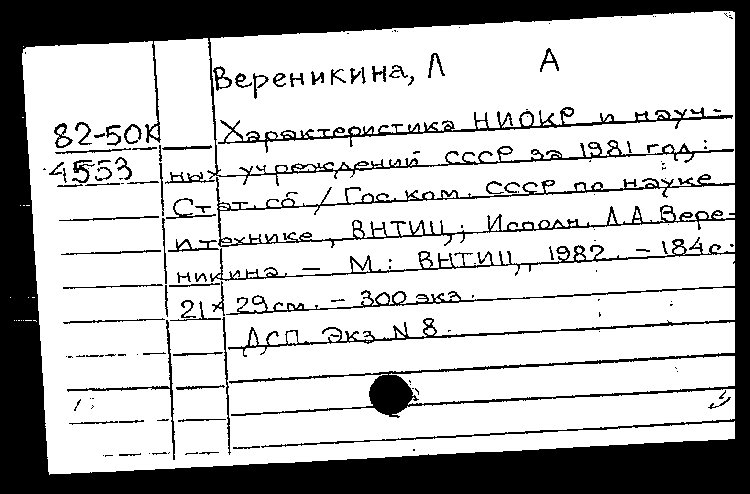 Вереникина, Л А
82-50К Характеристика НИОКР и науч-
4553 ных учреждений СССР за 1981 год:
Стат. сб. / Гос. ком. СССР по науке
и технике, ВНТИЦ,; Исполн. Л.А. Вере-
никина. – М.: ВНТИЦ, 1982. – 184с.;
21х29см. – 300 экз.
ДСП. Экз N 8.